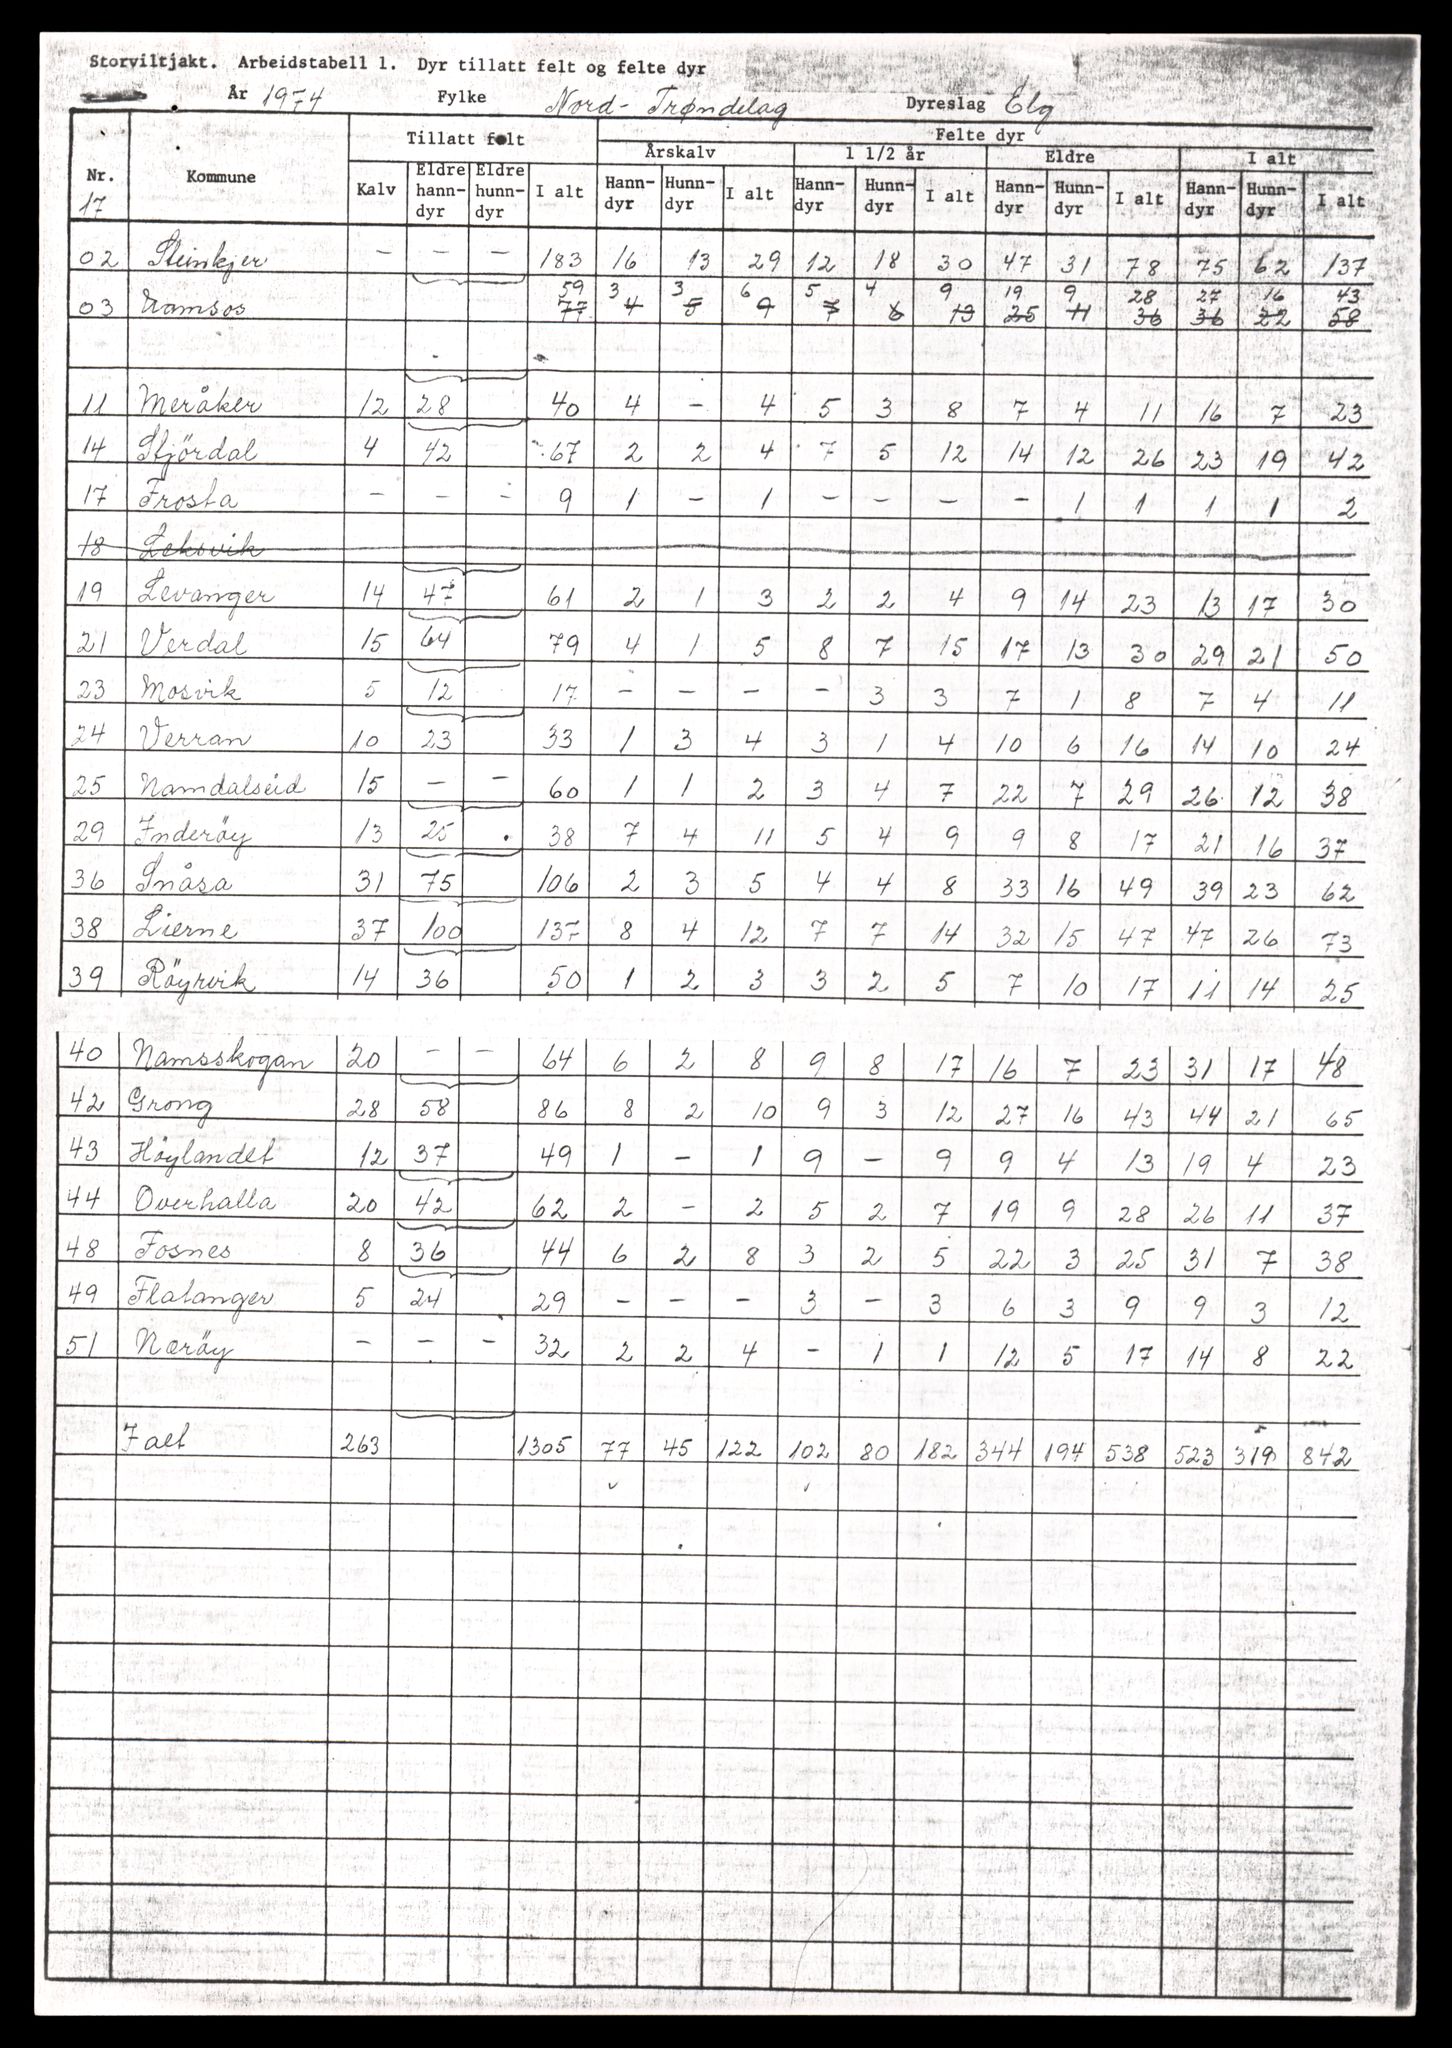 Storviltjakt. Arbeidstabell 1. Dyr tillatt felt og felte dyr
År 1974 Fylke Nord-Trøndelag Dyreslag Elg
Tillatt felt Felte dyr
Årskalv 1 1/2 år Eldre I alt
Nr. 17 Kommune Kalv Eldre hann-dyr Eldre hunn-dyr I alt Hann-dyr Hunn-dyr I alt Hann-dyr Hunn-dyr I alt Hann-dyr Hunn-dyr I alt Hann-dyr Hunn-dyr I alt
02 Steinkjer — — — 183 16 13 29 12 18 30 47 31 78 75 62 137
59 3 3 6 5 4 9 19 9 28 27 16 43
03 Namsos 77 4 5 9 7 6 13 25 11 36 36 22 58
11 Meråker 12 28 40 4 – 4 5 3 8 7 4 11 16 7 23
14 Stjördal 4 42 67 2 2 4 7 5 12 14 12 26 23 19 42
17 Frosta – – – 9 1 – 1 – – – – 1 1 1 1 2
18 Leksvik
19 Levanger 14 47 61 2 1 3 2 2 4 9 14 23 13 17 30
21 Verdal 15 64 79 4 1 5 8 7 15 17 13 30 29 21 50
23 Mosvik 5 12 17 – – – – 3 3 7 1 8 7 4 11
24 Verran 10 23 33 1 3 4 3 1 4 10 6 16 14 10 24
25 Namdalseid 15 – – 60 1 1 2 3 4 7 22 7 29 26 12 38
29 Inderöy 13 25 38 7 4 11 5 4 9 9 8 17 21 16 37
36 Snåsa 31 75 106 2 3 5 4 4 8 33 16 49 39 23 62
38 Lierne 37 100 137 8 4 12 7 7 14 32 15 47 47 26 73
39 Röyrvik 14 36 50 1 2 3 3 2 5 7 10 17 11 14 25
40 Namsskogan 20 – – 64 6 2 8 9 8 17 16 7 23 31 17 48
42 Grong 28 58 86 8 2 10 9 3 12 27 16 43 44 21 65
43 Höylandet 12 37 49 1 – 1 9 – 9 9 4 13 19 4 23
44 Overhalla 20 42 62 2 – 2 5 2 7 19 9 28 26 11 37
48 Fosnes 8 36 44 6 2 8 3 2 5 22 3 25 31 7 38
49 Flatanger 5 24 29 – – – 3 – 3 6 3 9 9 3 12
51 Næröy – – – 32 2 2 4 – 1 1 12 5 17 14 8 22
I alt 263 1305 77 45 122 102 80 182 344 194 538 523 319 842